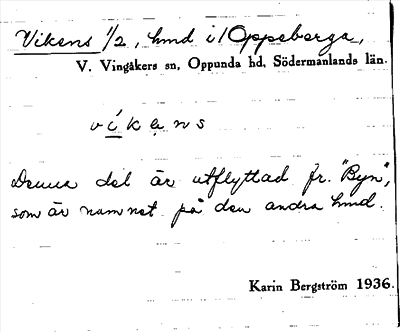 Vikens 1/2, hmd i/ Oppeberga,
V. Vingåkers sn, Oppunda hd, Södermanlands län.
víkęns
Denna del är utflyttad fr. "Byn",
som är namnet på den andra hmd.
Karin Bergström 1936.